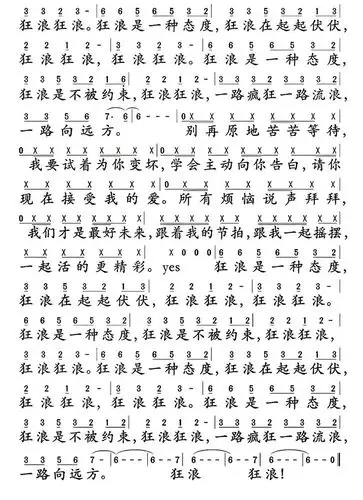 3 3 2 3 - | 6 6 5 6 5 3 2 | 3 3 5 3 2 2 1 3 |
狂浪狂浪。狂浪是一种态度,狂浪在起起伏伏,
2 2 1 2 - | 3 3 2 3 - | 6 6 5 6 5 3 2 |
狂浪狂浪,狂浪狂浪。狂浪是一种态度,
3 3 5 3 2 1 6 | 2 2 1 2 - | 3 3 3 2 3 3 5 3 2 |
狂浪是不被约束,狂浪狂浪,一路疯狂一路流浪,
3 3 5 6 7· 6 | 6 - - - | 0 X X X X X X X X |
一路向远方。 别再原地苦苦等待,
0 X X X X X X X X | 0 X X X X X X X X X |
我要试着为你变坏,学会主动向你告白,请你
X X X X X X X | 0 X X X X X X X X |
现在接受我的爱。所有烦恼说声拜拜,
0 X X X X X X X X | 0 X X X X X X X X X X X X |
我们才是最好未来,跟着我的节拍,跟我一起摇摆,
X X X X X X X | X 0 0 0 | 6 6 5 6 5 3 2 |
一起活的更精彩。yes 狂浪是一种态度,
3 3 5 3 2 2 1 3 | 2 2 1 2 - | 3 3 2 3 - |
狂浪在起起伏伏,狂浪狂浪,狂浪狂浪。
6 6 5 6 5 3 2 | 3 3 5 3 2 1 6 | 2 2 1 2 - |
狂浪是一种态度,狂浪是不被约束,狂浪狂浪,
3 3 2 3 - | 6 6 5 6 5 3 2 | 3 3 5 3 2 2 1 3 |
狂浪狂浪。狂浪是一种态度,狂浪在起起伏伏,
2 2 1 2 - | 3 3 2 3 - | 6 6 5 6 5 3 2 |
狂浪狂浪,狂浪狂浪。狂浪是一种态度,
3 3 5 3 2 1 6 | 2 2 1 2 - | 3 3 3 2 3 3 5 3 2 |
狂浪是不被约束,狂浪狂浪,一路疯狂一路流浪,
3 3 5 6 7 - | 6 - - - | 6 - - 7 | 6 - - - | 6 - - 7 | 6 - - 0 ‖
一路向远方。 狂浪 狂浪!